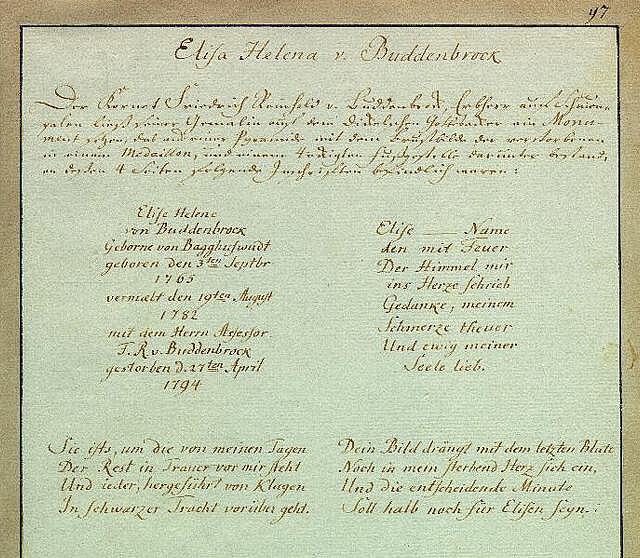 97
Elisa Helena v. Buddenbrock
Der Kornet Friedrich Reinhold v. Buddenbrock, Erbherr auf Schujen-
palen ließ seiner Gemalin auf dem Gottesacker ein Monu-
ment setzen, das aus einer Pyramide mit dem Brustbilde der verstorbenen
in einem Medaillon, und einem 4eckigten Fußgestelle darunter bestand,
an dessen 4 Seiten folgende Inschriften befindlich waren:
Elise Helene
von Buddenbrock
Geborne von Bagghufwudt
geboren den 3ten Septbr
1765
vermælt den 19ten August
1782
mit dem Herrn Assessor
F. R. v. Buddenbrock
gestorben d. 27ten April
1794
Elise —— Name
den mit Feuer
Der Himmel mir
ins Herze schrieb
Gedanke, meinem
Schmerze theuer
Und ewig meiner
Seele lieb.
Sie ists, um die von meinen Tagen
Der Rest in Trauer vor mir steht
Und ieder, hergeführt von Klagen
In schwarzer Tracht vorüber geht.
Dein Bild drängt mit dem letzten Blute
Noch in mein sterbend Herz sich ein,
Und die entscheidende Minute
Soll halb noch für Elisen seyn.